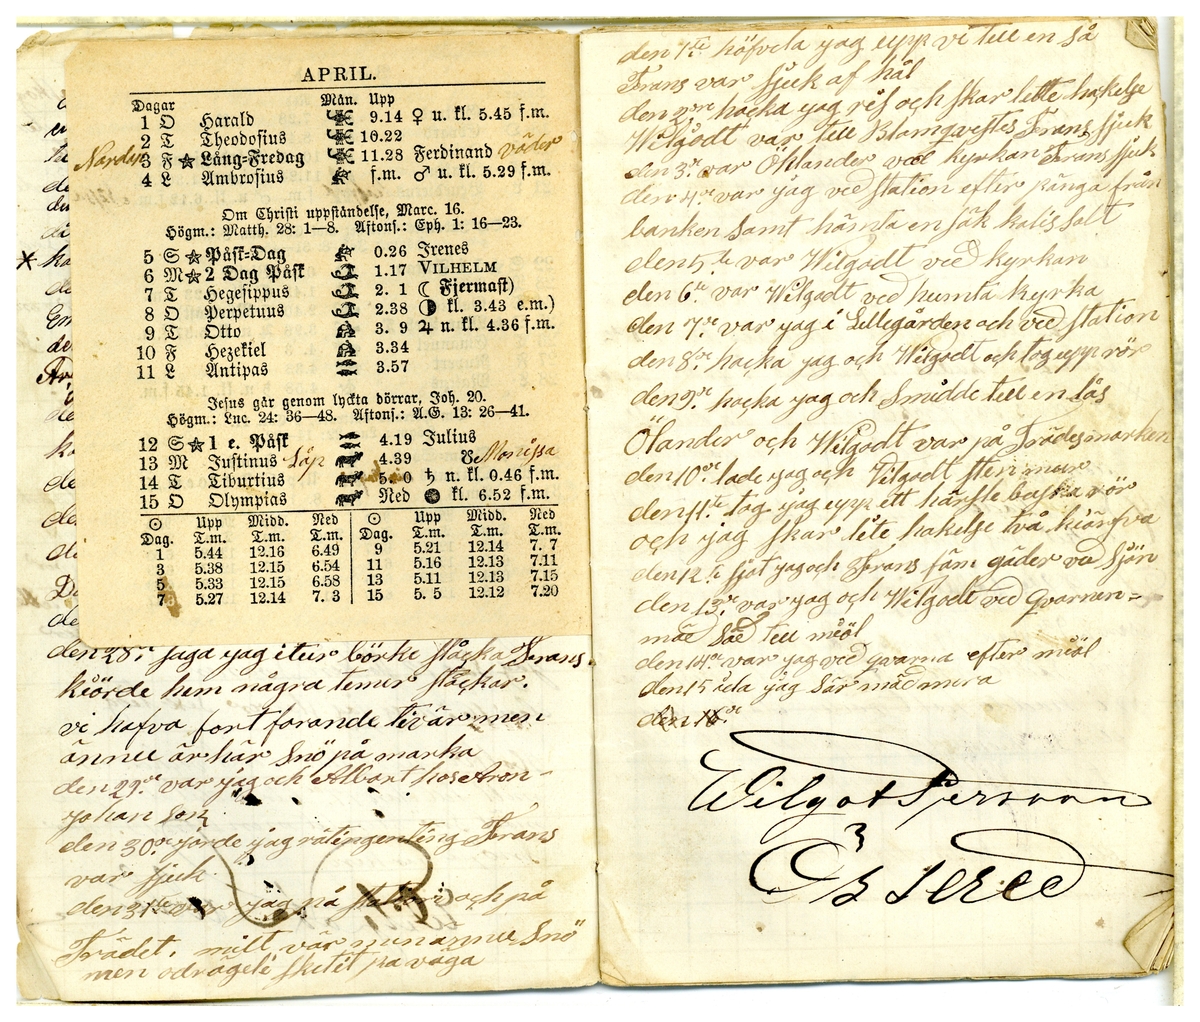 APRIL.
Dagar Mån. Upp
1 O Harald 9.14 ♀ u. kl. 5.45 f.m.
2 T Theodosius 10.22
3 F ☆ Lång-Fredag 11.28 Ferdinand väder
4 L Ambrosius f.m. ♂ u. kl. 5.29 f.m.
Om Christi uppståndelse, Marc. 16.
Högm.: Matth. 28: 1—8. Aftons.: Eph. 1: 16—23.
5 S ☆ Påsk-Dag 0.26 Irenes
6 M ☆ 2 Dag Påsk 1.17 VILHELM
7 T Hegesippus 2. 1 ☾ Fjermast)
8 O Perpetuus 2.38 ◑ kl. 3.43 e.m.)
9 T Otto 3. 9 ♃ n. kl. 4.36 f.m.
10 F Hezekiel 3.34
11 L Antipas 3.57
Jesus går genom lyckta dörrar, Joh. 20.
Högm.: Luc. 24: 36—48. Aftons.: A.G. 13: 26—41.
12 S ☆ 1 e. Påsk 4.19 Julius
13 M Justinus 4.39
14 T Tiburtius 5. 0 ♄ n. kl. 0.46 f.m.
15 O Olympias Ned ● kl. 6.52 f.m.
☉ Upp Midd. Ned ☉ Upp Midd. Ned
Dag. T.m. T.m. T.m. Dag. T.m. T.m. T.m.
1 5.44 12.16 6.49 9 5.21 12.14 7. 7
3 5.38 12.15 6.54 11 5.16 12.13 7.11
5 5.33 12.15 6.58 13 5.11 12.13 7.15
7 5.27 12.14 7. 3 15 5. 5 12.12 7.20
den 28de saga jag itur börke Ståcka Frans
kiörde hem några temer Stäckar.
vi hafva fort farande tivär men
ännu är här Snö på marka
den 29de var jag och Albart hos Aron
Johan Son
den 30de jörde jag rätingenting Frans
var sjuk
den 31te var jag på Station och på
Trädet. milt vär men ännu Snö
men odrägeli sketit på väga
den 1te höfvela jag upp vi tell en Så
Frans var sjuk af hål
den 2dre hacka jag ris och skar lette hakelse
Wilgodt var tell Blomqvistes Frans sjuk
den 3de var Öhlander ved kyrkan Frans sjuk
den 4de var jag ved station efter pänga från
banken samt hämta en säk kalis salt
den 5te var Wilgodt ved kyrkan
den 6te var Wilgodt ved humla kyrka
den 7de var jag i Lillegården och ved station
den 8de hacka jag och Wilgodt och tog upp rör
den 9de hacka jag och Smidde tell en lås
Ölander och Wilgodt var på Trädesmarken
den 10de lade jag och Wilgodt sten mur
den 11te tog jag upp ett härsle baska rör
och jag skar lite hakelse två kiärfva
den 12te sjöt jag och Frans fäm gäder ved Sjön
den 13de var jag och Wilgodt ved qvarnen
mäd Säd tell miöl
den 14de var jag ved qvarna efter miöl
den 15 åla jag Sär mäd mera
den 16de
Wilgot Persson